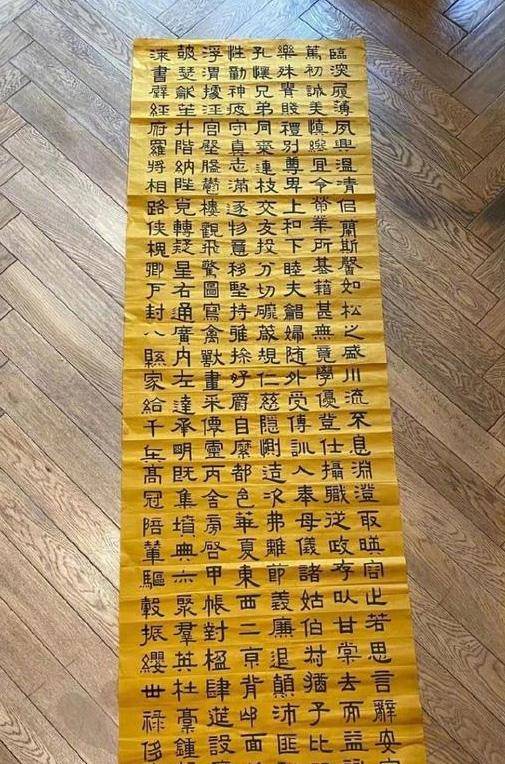 臨深履薄夙興溫凊佀蘭斯馨如松之盛川流不息淵澄取暎容止若思言辭安
篤初誠美慎終宜令榮業所基籍甚無竟學優登仕攝職從政存以甘棠去而益
樂殊貴賤禮別尊卑上和下睦夫唱婦随外受傅訓入奉母儀諸姑伯叔猶子比
孔懷兄弟同氣連枝交友投分切磨箴規仁慈隱惻造次弗離節義廉退顛沛匪
性動神疲守真志滿逐物意移堅持雅操好爵自縻都邑華夏東西二京背邙面
浮渭據涇宫殿盤鬱樓觀飛驚圖寫禽獸畫采僊靈丙舍旁啓甲帳對楹肆筵設
鼓瑟龡笙升階納陛弁轉疑星右通廣内左達承明既集墳典亦聚羣英杜稾鍾
漆書壁經府羅將相路俠槐卿戶封八縣家給千兵高冠陪輦驅轂振纓世祿侈